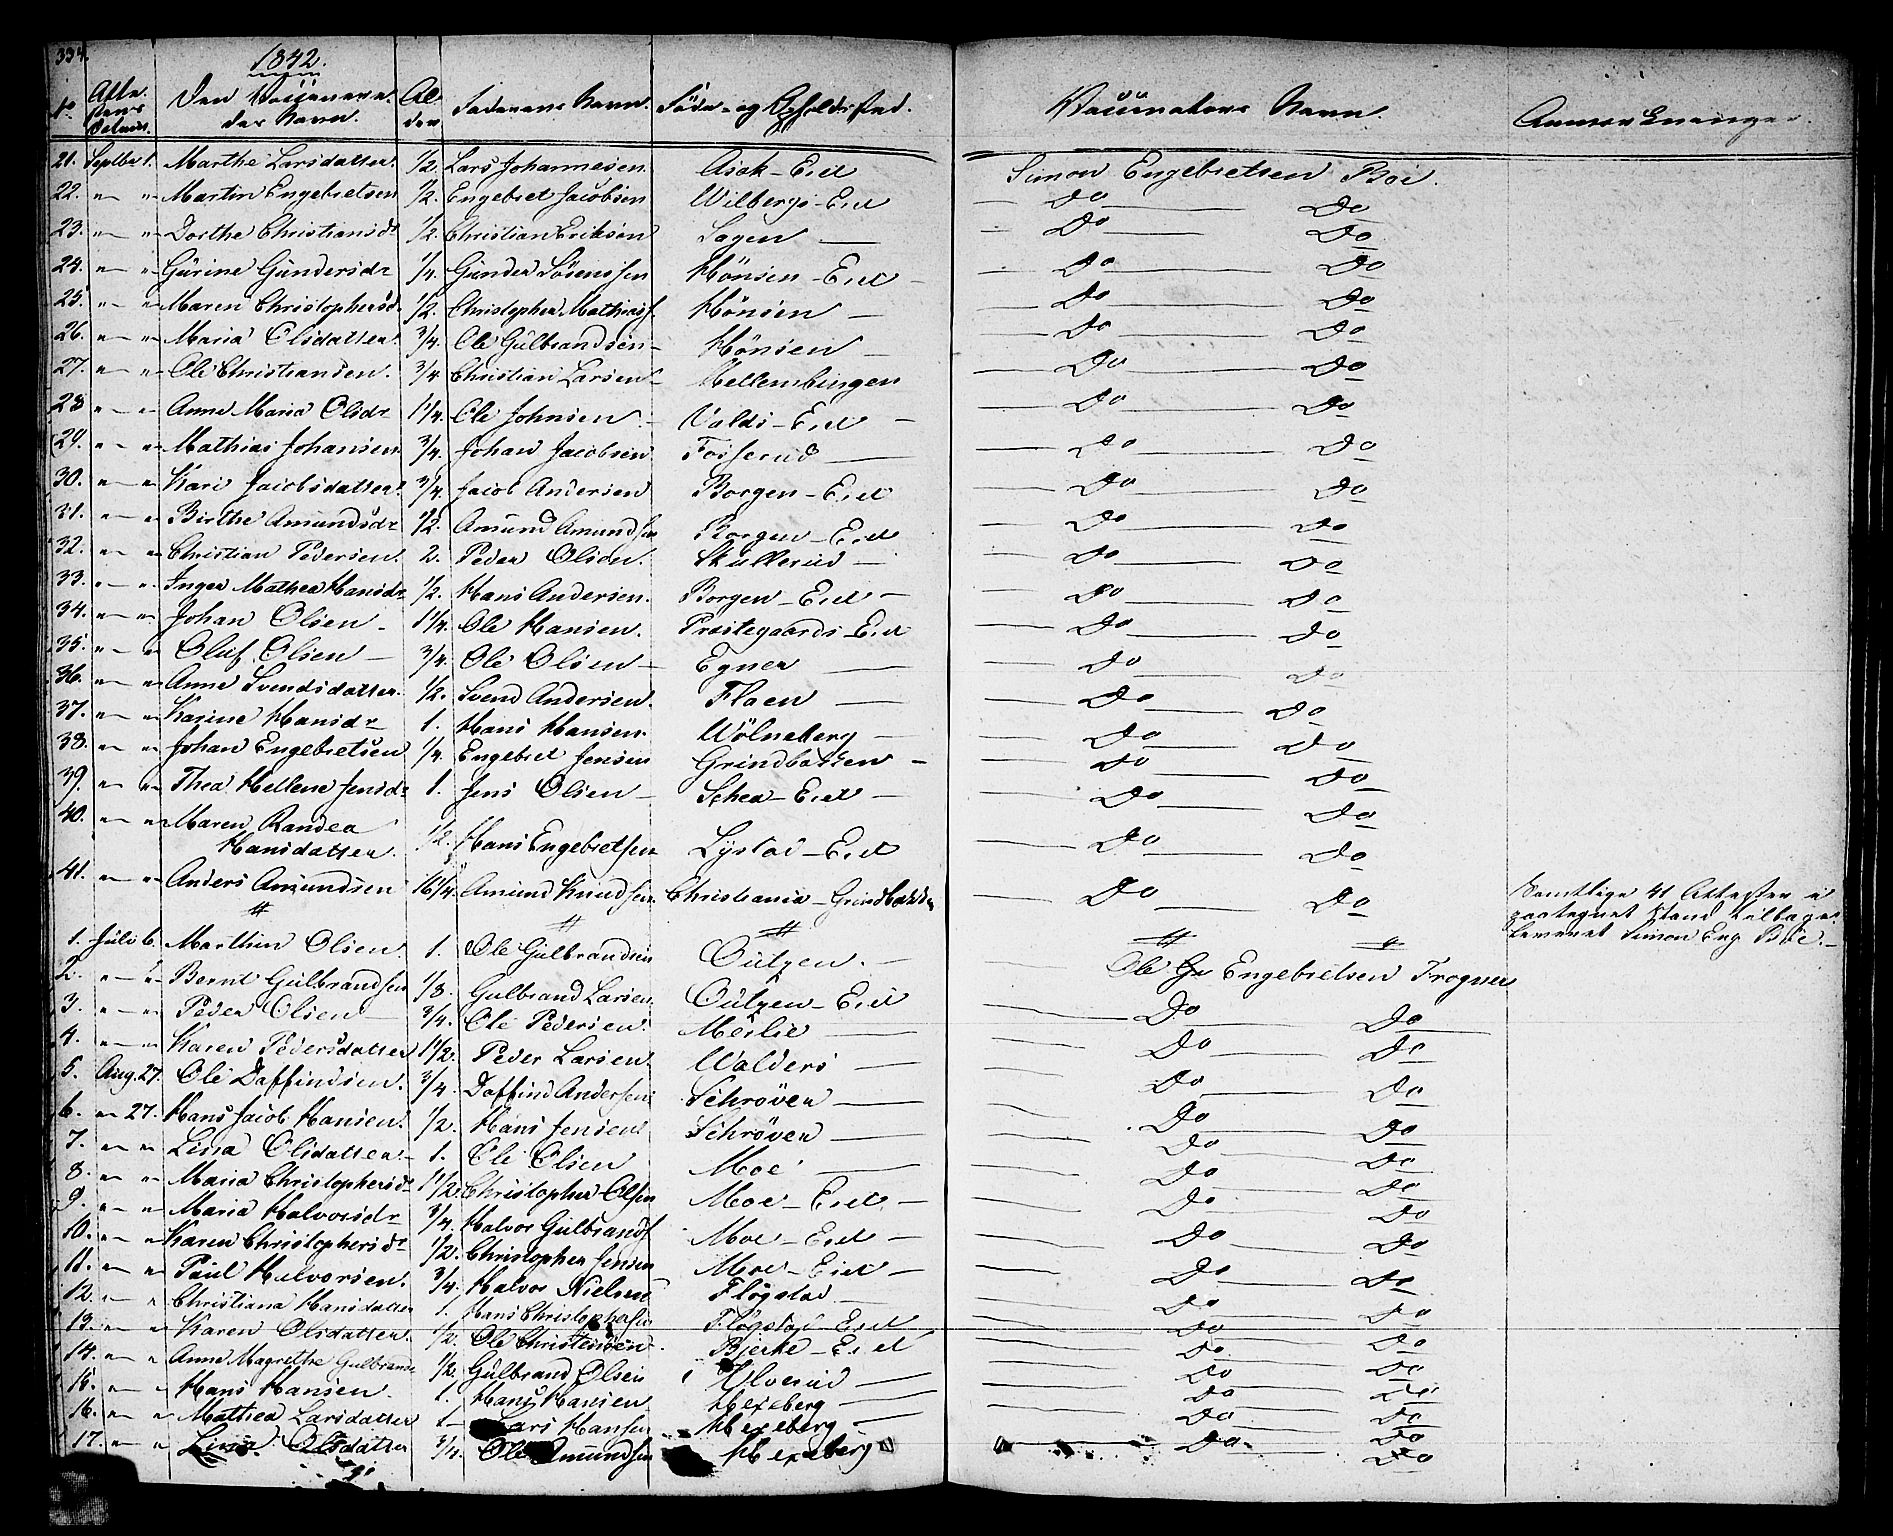 334.
1842.
No Attestens Datum. Den Vaccinerendes Navn. Alder Faderens Navn. Føde- og Opholdssted. Vaccinatørs Navn. Anmærkninger.
21. Septbr 1. Marthe Larsdatter. 1/2. Lars Johannesen. Asak-Eiet Simon Engebretsen Böe.
22. " " Martin Engebretsen 1/2. Engebret Jacobsen Wilbergs-Eiet Do Do
23. " " Dorthe Christiansdr 1/2. Christian Eriksen Sagen Do Do
24. " " Gurine Gundersdr 1/4. Gunder Sörenssen Hönsen-Eiet Do Do
25. " " Maren Christophersd. 1/2. Christopher Mathiass. Hönsen Do Do
26. " " Maria Olsdatter. 3/4. Ole Gulbrandsen Hönsen Do Do
27. " " Ole Christiansen. 3/4 Christian Larsen Mellembingen Do Do
28 " " Anne Maria Olsdr 1 1/4. Ole Johnsen Valds-Eiet Do Do
29. " " Mathias Johansen 3/4. Johan Jacobsen Fosserud Do Do
30. " " Kari Jacobsdatter. 3/4. Jacob Andersen Borgen-Eiet Do Do
31. " " Birthe Amundsdr 1/2. Amund Amundsen Borgen-Eiet Do Do
32. " " Christian Pedersen. 2. Peder Olsen. Skullerud Do Do
33. " " Inger Mathea Hansdr 1/2. Hans Andersen. Borgen-Eiet Do Do
34. " " Johan Olsen 1 1/4. Ole Hansen. Præstegaards-Eiet Do Do
35. " " Oluf Olsen 3/4. Ole Olsen Egner Do Do
36. " " Anne Svendsdatter. 1/2. Svend Andersen. Flaen Do Do
37. " " Karine Hansdr 1. Hans Hansen. Wölneberg Do Do
38. " " Johan Engebretsen 1/4. Engebret Jensen Grindbakken Do Do
39. " " Thea Hellene Jensdr 1. Jens Olsen Schea-Eiet Do Do
40. " " Maren Randea
Hansdatter. 1/2. Hans Engebretsen Lystad-Eiet Do Do
41. " " Anders Amundsen 16/4. Amund Knudsen Christiania-Grindbakken Do Do
Samtlige 41 Attester i
paategnet Stand tilbage-
leveret Simon Eng Böe.
1. Juli 6. Marthin Olsen. 1. Ole Gulbrandsen Outzen. Ole Engebretsen Frogner
2. " " Bernt Gulbrandsen 1/8. Gulbrand Larsen. Outzen-Eiet Do Do
3. " " Peder Olsen 3/4. Ole Pedersen. Meilie Do Do
4. " " Karen Pedersdatter 1 1/2. Peder Larsen. Walders Do Do
5. Aug. 27. Ole Daffindsen. 3/4. Daffind Andersen Schröver Do Do
6. " 27. Hans Jacob Hansen. 1/2. Hans Jensen Schröver Do Do
7. " " Lina Olsdatter 1. Ole Olsen Moe Do Do
8. " " Maria Christophersdr 1 1/2. Christopher Olsen Moe-Eiet Do Do
9. " " Maria Halvorsdr 3/4. Halvor Gulbrands. Moe-Eiet Do Do
10. " " Karen Christophersdr 1/2. Christopher Jensen Moe-Eiet Do Do
11. " " Paul Halvorsen. 3/4. Halvor Nielsen Flögstad Do Do
12. " " Christiana Hansdatter 1. Hans Christophersen Flögstad-Eiet Do Do
13. " " Karen Olsdatter. 1/2. Ole Christensen. Bjerke-Eiet Do Do
14. " " Anne Magrethe Gulbrandsd 1/2. Gulbrand Olsen Ulverud Do Do
15. " " Hans Hansen. 1. Hans Hansen Hexeberg Do Do
16. " " Mathea Larsdatter 1 Lars Hansen Hexeberg Do Do
17. " " Lina Olsdatter 3/4. Ole Amundsen Hexeberg Do Do